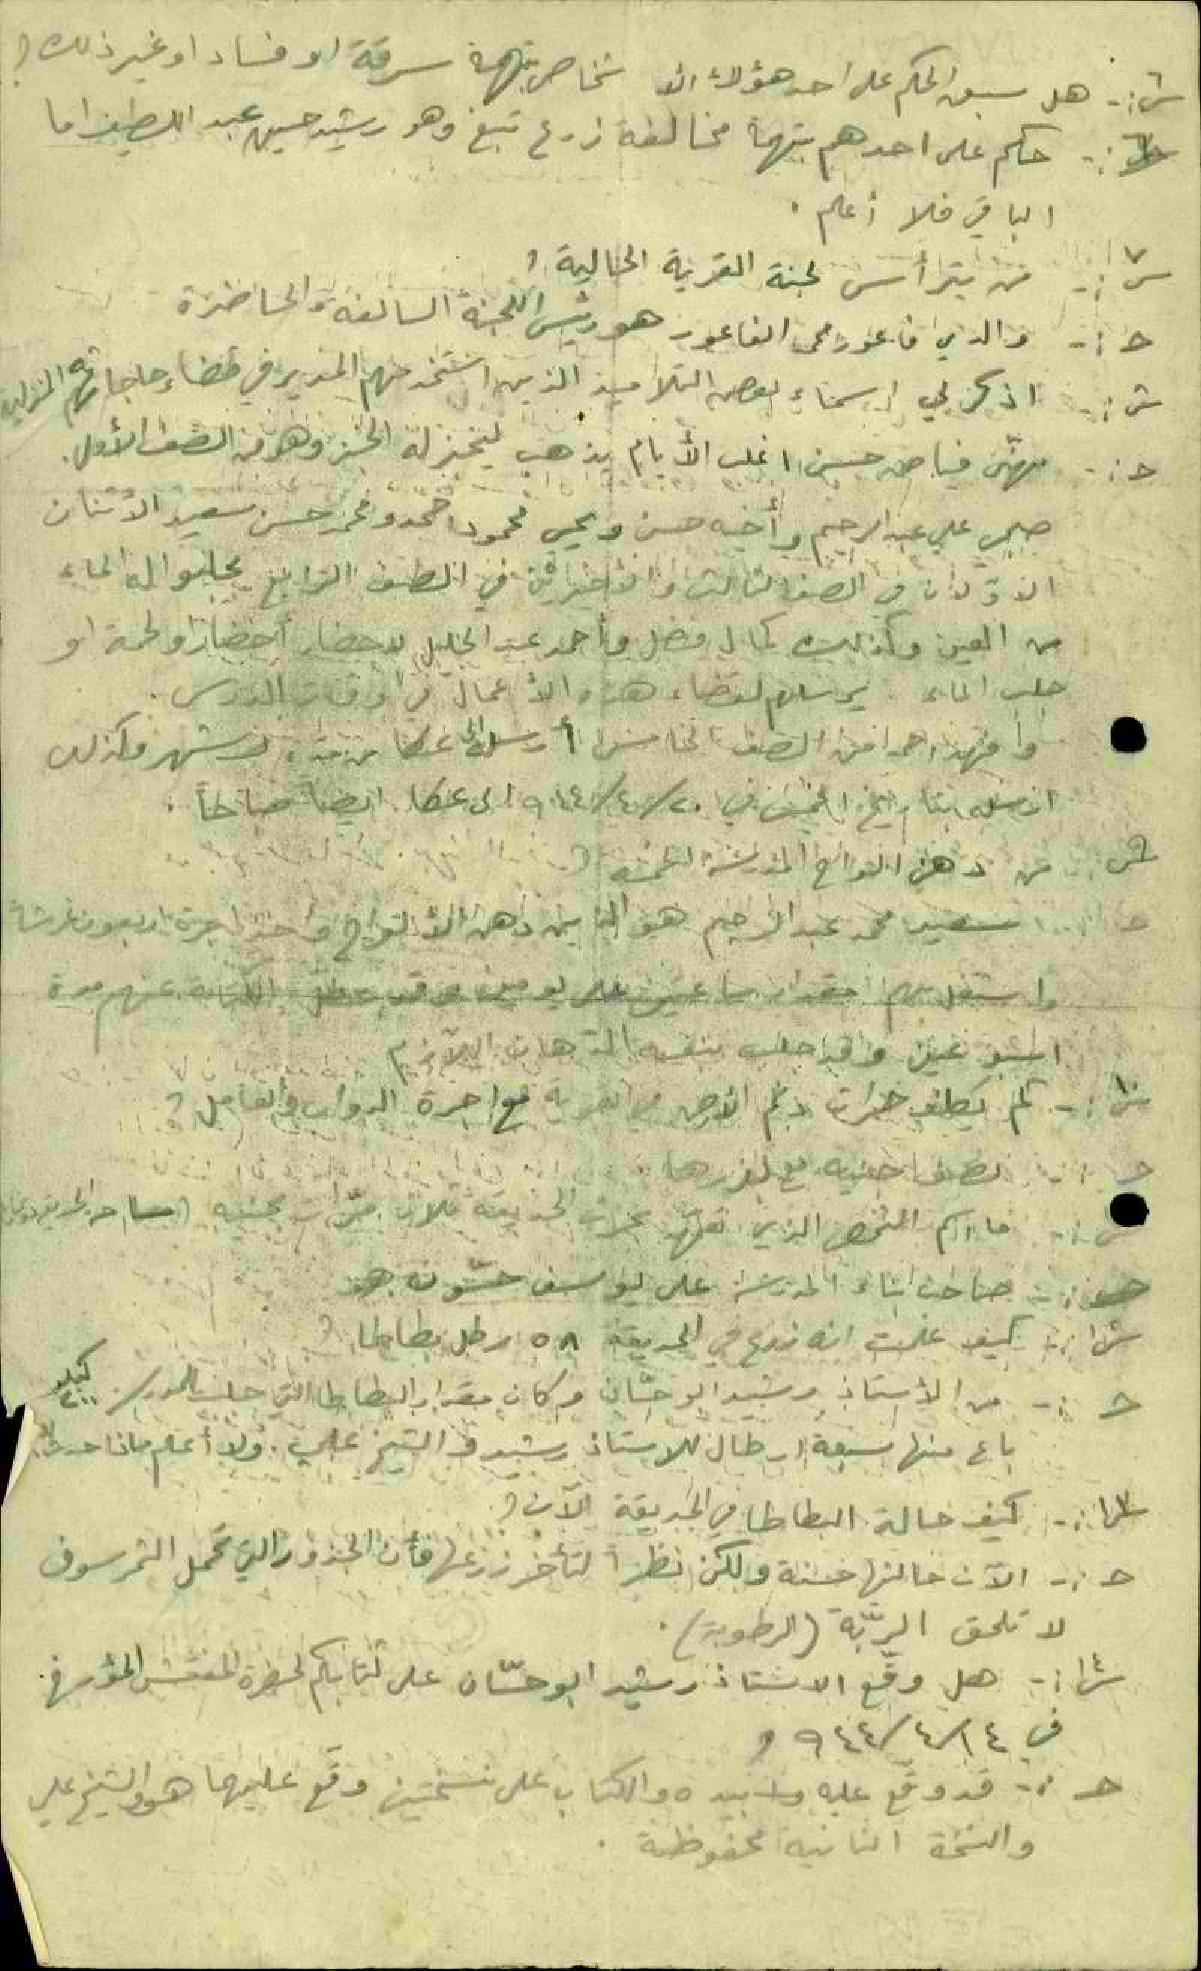 س٦:- هل سبق الحكم على احد هؤلاء الاشخاص بتهمة سرقة او فساد او غير ذلك؟
ج٦:- حكم على احدهم بتهمة مخالفة زرع تبغ وهو رشيد حسين عبد اللطيف اما
الباقي فلا أعلم .
س٧:- من يترأس لجنة القرية الحالية؟
ج:- والدي فاعور محي الفاعور هو رئيس اللجنة السالفة والحاضرة
س:- اذكر لي اسماء بعض التلاميذ الذين استخدمهم المدير في قضاء حاجاته المنزلية
ج:- فياض حسن اغلب الأيام يذهب ليخبز له الخبز وهو من الصف الأول.
صبحي علي عبد الرحيم وأخيه حسن ويحي محمود احمد ومحمد حسن سعيد الاثنان
الاولان في الصف الثالث والأخيرين في الصف الرابع يجلبوا له الماء
من العين وكذلك كمال فضل وأحمد عبد الخليل لاحضار أخضار او لحمة او
جلب الماء يرسلهم لقضاء هذه الأعمال في اوقات الدرس .
وا فهد احمد من الصف الخامس أرسله الى عكا من مدة شهر وكذلك
ارسله بتاريخ الخميس في ٢٠/٤/٩٤٤ الى عكا ايضاً صباحاً .
س٩:- من دهن الواح المدرسة الخمسة؟
ج:- سعيد محمد عبد الرحيم هو الذي دهن الألواح واخذ اجرة اربعون غرشاً
واشتغل بهم مقدار ساعتين على يومين وقد عطل الكتابة عنهم مدة
اسبوعين وقد جلب بنفسه الدهان اللازم
س١٠:- كم يكلف حراث دنم الأرض في القرية مع اجرة الدواب والعامل؟
ج:- نصف جنيه مع بذرها
س:- ما اسم الشخص الذي تعهد بحراث الحديقة ثلاث مرات بجنيه
ج:- صاحب بناء المدرسة علي يوسف حسون
س:- كيف علمت انه زرع في الحديقة ٥٨ رطل بطاطا؟
ج:- من الأستاذ رشيد ابو حسّان وكان مقدار البطاطا التي جلبت للمدرسة كيلو
باع منها سبعة ارطال للاستاذ رشيد والشيخ علي. ولا أعلم ماذا حدث
س١٣:- كيف حالة البطاطا في الحديقة الآن؟
ج:- الآن حالتها حسنة ولكن نظراً لتأخر زرعها فأن الجذور التي تحمل الثمر سوف
لا تلحق الريّة (الرطوبة).
س١٤:- هل وقّع الاستاذ رشيد ابو حسّان على كتابكم لحضرة المفتش المؤرخ
في ١٤/٤/٩٤٤ ؟
ج:- قد وقّع عليه وبيده والكتاب على نسختين وقّع عليهما هو والشيخ علي
والنسخة الثانية محفوظة .